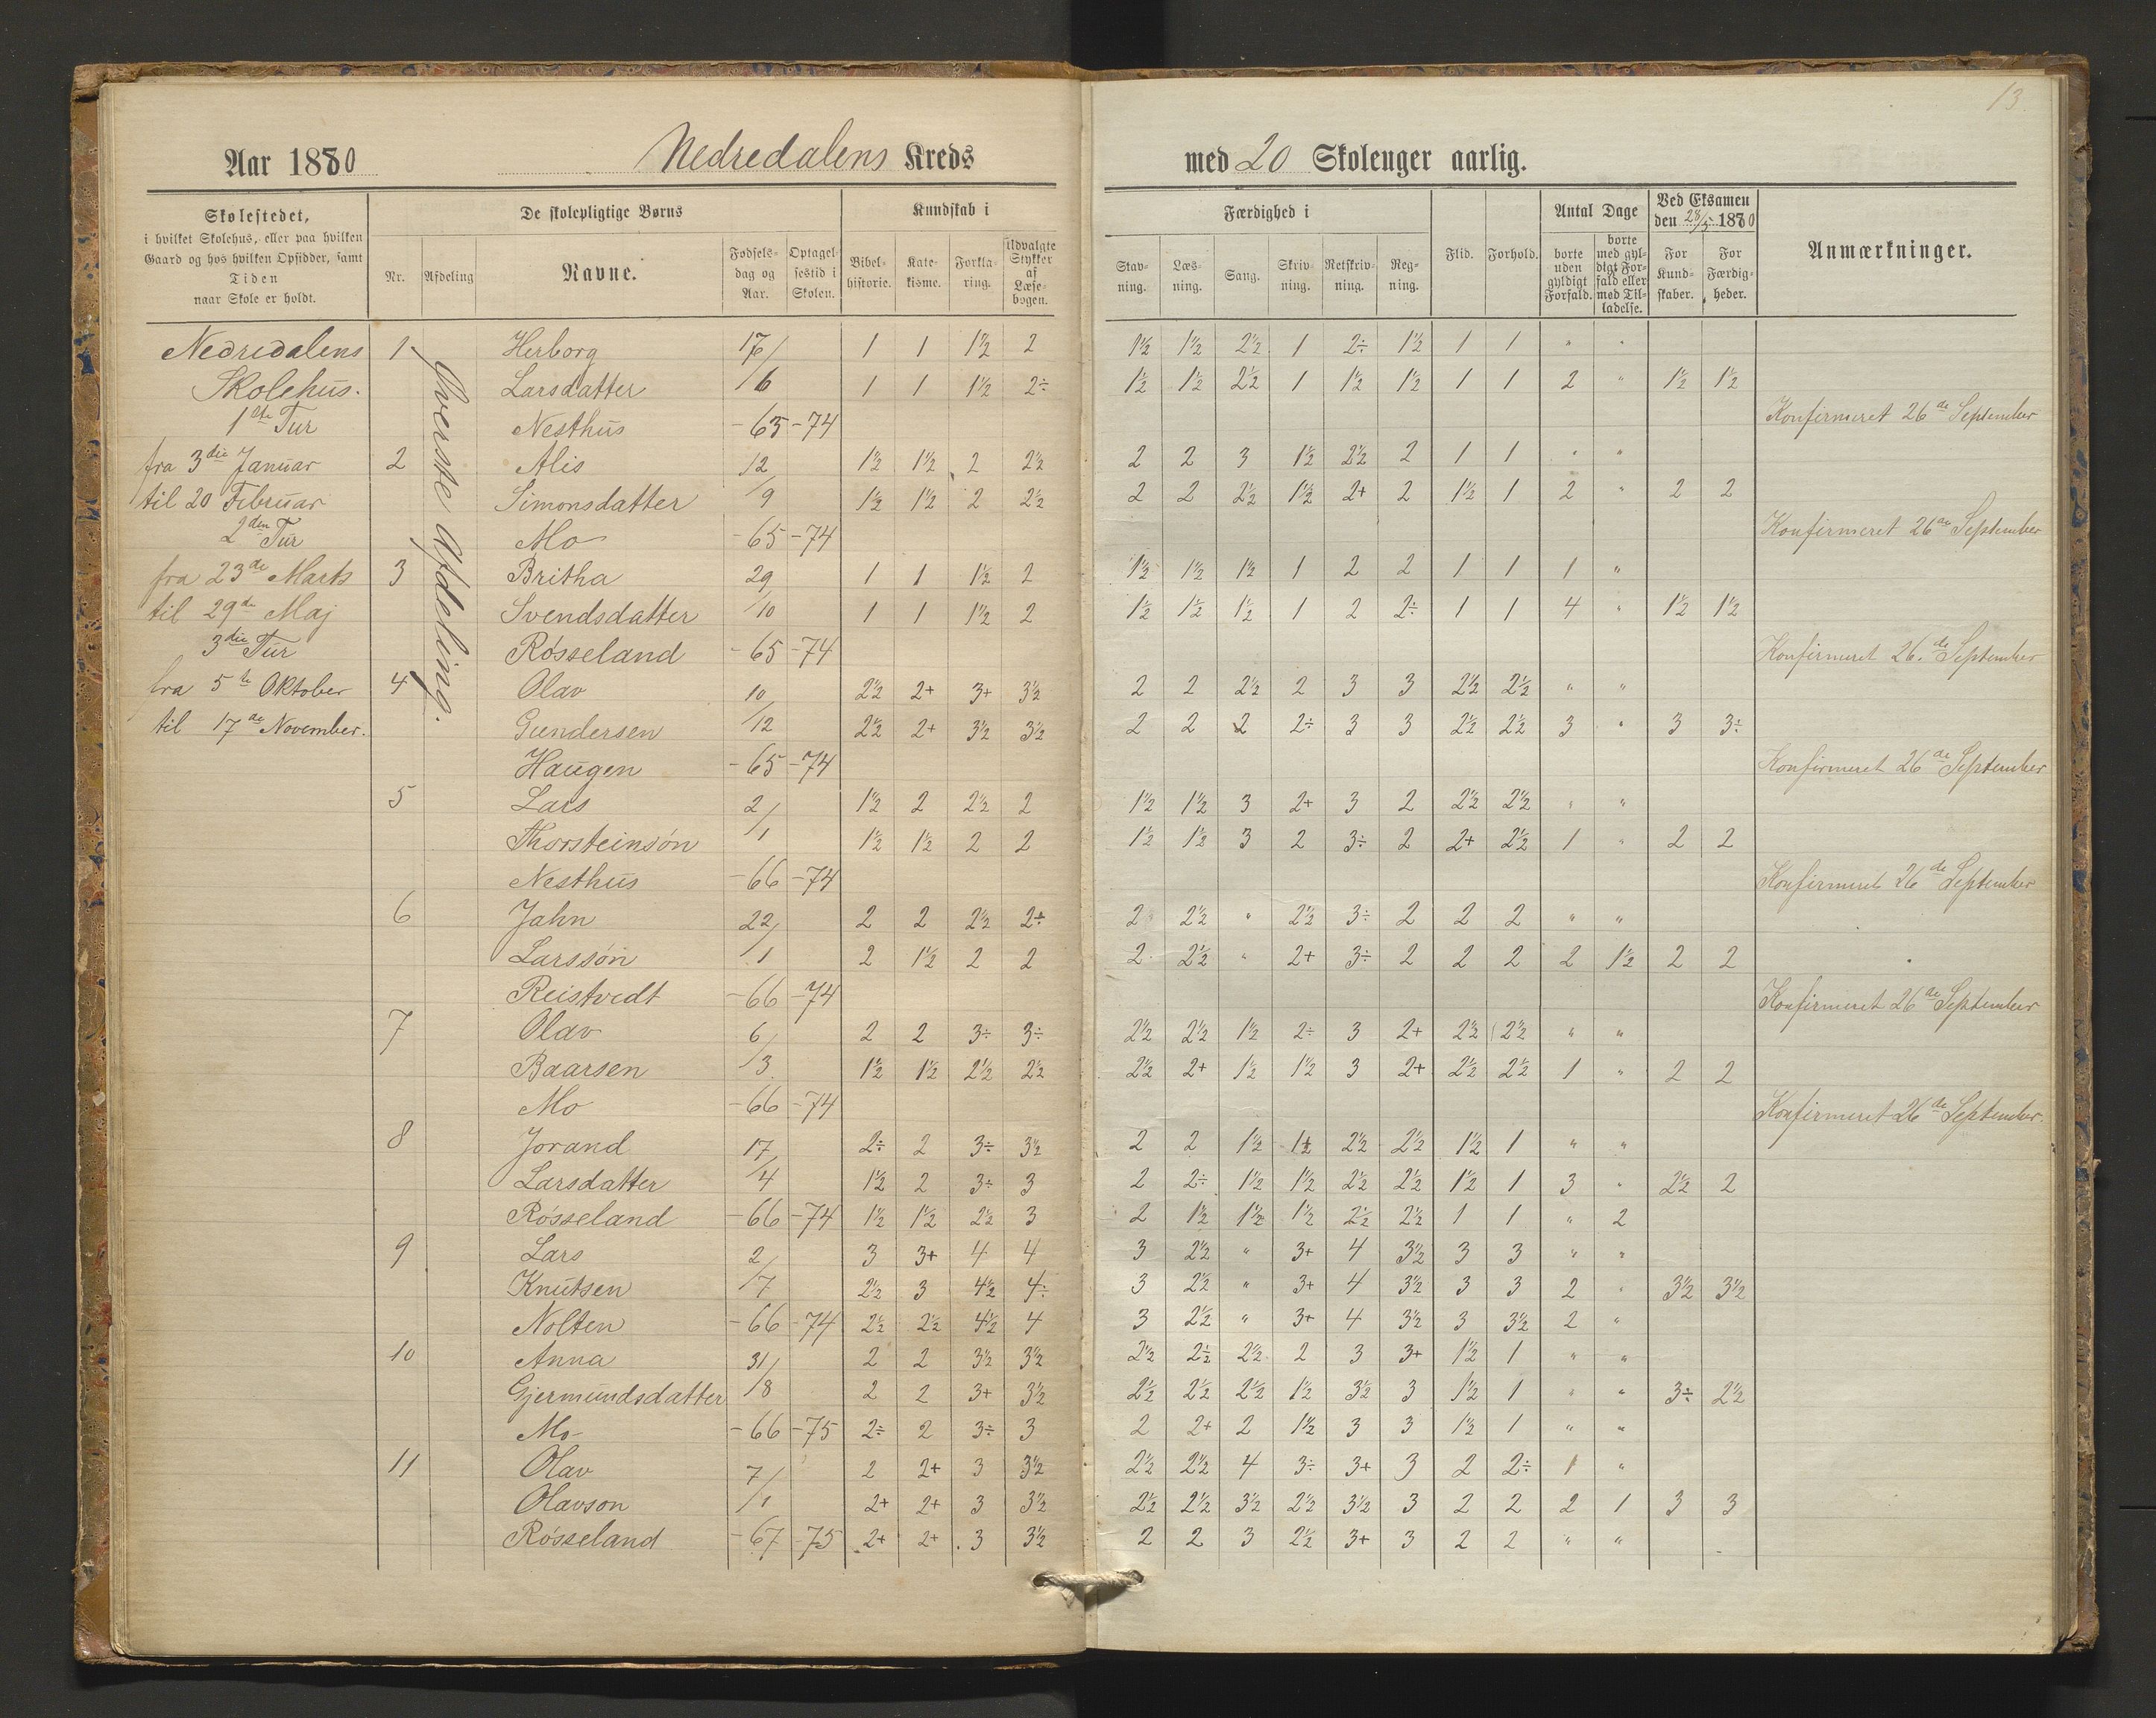 13
Aar 1880 Nedredalens Kreds med 20 Skoleuger aarlig.
Skolestedet,
i hvilket Skolehus, eller paa hvilken
Gaard og hos hvilken Opsidder, samt
Tiden
naar Skole er holdt.
De skolepligtige Børns
Nr. Afdeling Navne. Fødsels-dag og Aar. Optagel-sestid i Skolen.
Kundskab i
Bibel-historie. Kate-kisme. Forkla-ring. tildvalgte Stykker af Læse-bogen.
Færdighed i
Stav-ning. Læs-ning. Sang. Skriv-ning. Retskriv-ning. Reg-ning.
Flid. Forhold.
Antal Dage
borte uden gyldigt Forfald. borte med gyl-digt For-fald eller med Til-ladelse.
Ved Eksamen den 28/5 1880
For Kund-skaber. For Færdig-heder.
Anmærkninger.
Øverste Afdeling.
Nedredalens 1 Herborg 17/ 1 1 1½ 2 1½ 1½ 2½ 1 2÷ 1½ 1 1 " "
Skolehus. Larsdatter /6 1 1 1½ 2÷ 1½ 1½ 2½ 1 1½ 1½ 1 1 2 " 1½ 1½
1ste Tur Nesthus -65 -74 Konfirmeret 26de September
fra 3die Januar 2 Alis 12 1½ 1½ 2 2½ 2 2 3 1½ 2½ 2 1 1 " "
til 20 Februar Simonsdatter /9 1½ 1½ 2 2½ 2 2 2½ 1½ 2+ 2 1½ 1 2 " 2 2
2den Tur Mo -65 -74 Konfirmeret 26de September
fra 23de Marts 3 Britha 29 1 1 1½ 2 1½ 1½ 1½ 1 2 2 1 1 1 "
til 29de Maj Svendsdatter /10 1 1 1½ 2 1½ 1½ 1½ 1 2 2÷ 1 1 4 " 1½ 1½
3die Tur Røsseland -65 -74 Konfirmeret 26.de September
fra 5te Oktober 4 Olav 10 2½ 2+ 3+ 3½ 2 2 2½ 2 3 3 2½ 2½ " "
til 17de November. Gundersen /12 2½ 2+ 3½ 3½ 2 2 2 2÷ 3 3 2½ 2½ 3 " 3 3÷
Haugen -65 -74 Konfirmeret 26de September
5 Lars 2/ 1½ 2 2½ 2 1½ 1½ 3 2+ 3 2 2½ 2½ " "
Thorsteinsøn /1 1½ 1½ 2 2 1½ 1½ 3 2 3÷ 2 2+ 2½ 1 " 2 2
Nesthus -66 -74 Konfirmeret 26de September
6 Jahn 22/ 2 2 2½ 2÷ 2 2½ " 2½ 3÷ 2 2 2 " "
Larssøn /1 2 1½ 2 2 2 2½ " 2+ 3÷ 2 2 2 2 1½ 2 2
Reistvedt -66 -74 Konfirmeret 26de September
7 Olav 6/ 2 2 3÷ 3÷ 2½ 2½ 1½ 2÷ 3 2+ 2½ 2½ " "
Baarsen /3 1½ 1½ 2½ 2½ 2½ 2+ 1½ 1½ 3 2+ 2½ 2½ 1 " 2 2
Mo -66 -74 Konfirmeret 26de September.
8 Jorand 17/ 2÷ 2 3÷ 3½ 2 2 1½ 1½ 2½ 2½ 1½ 1 " "
Larsdatter /4 1½ 2 3÷ 3 2 2÷ 1½ 1½ 2½ 2½ 1½ 1 3 " 2½ 2
Røsseland -66 -74 1½ 1½ 2½ 3 2 1½ 1½ 1½ 2½ 2½ 1 1 " 2
9 Lars 2/ 3 3+ 4 4 3 2½ " 3+ 4 3½ 3 3 " "
Knutsen /7 2½ 3 4½ 4÷ 3 2½ " 3+ 4 3½ 3 3 2 " 3½ 3½
Nolten -66 -74 2½ 2½ 4½ 4 3 2½ " 3+ 4 3½ 3 3½ 2 "
10 Anna 31/ 2 2 3½ 3½ 2½ 2½ 2½ 2 3 3+ 1½ 1 " "
Gjermundsdatter /8 2 2 3+ 3½ 2½ 2½ 2½ 1½ 3½ 3 1½ 1 " " 3÷ 2½
Mo -66 -75 2÷ 2 3÷ 3 2 2+ 2 1½ 3 3 1½ 1 " "
11 Olav 7/ 2 2+ 3 3½ 2½ 2½ 4 3÷ 3+ 3 2 2÷ 1 "
Olavson /1 2+ 2+ 3 3½ 2½ 2½ 3½ 2½ 3½ 3 2 2 2 1 3 3
Røsseland -67 -75 2+ 2+ 3 3½ 2 2 3 2½ 3+ 3 2 2 " "